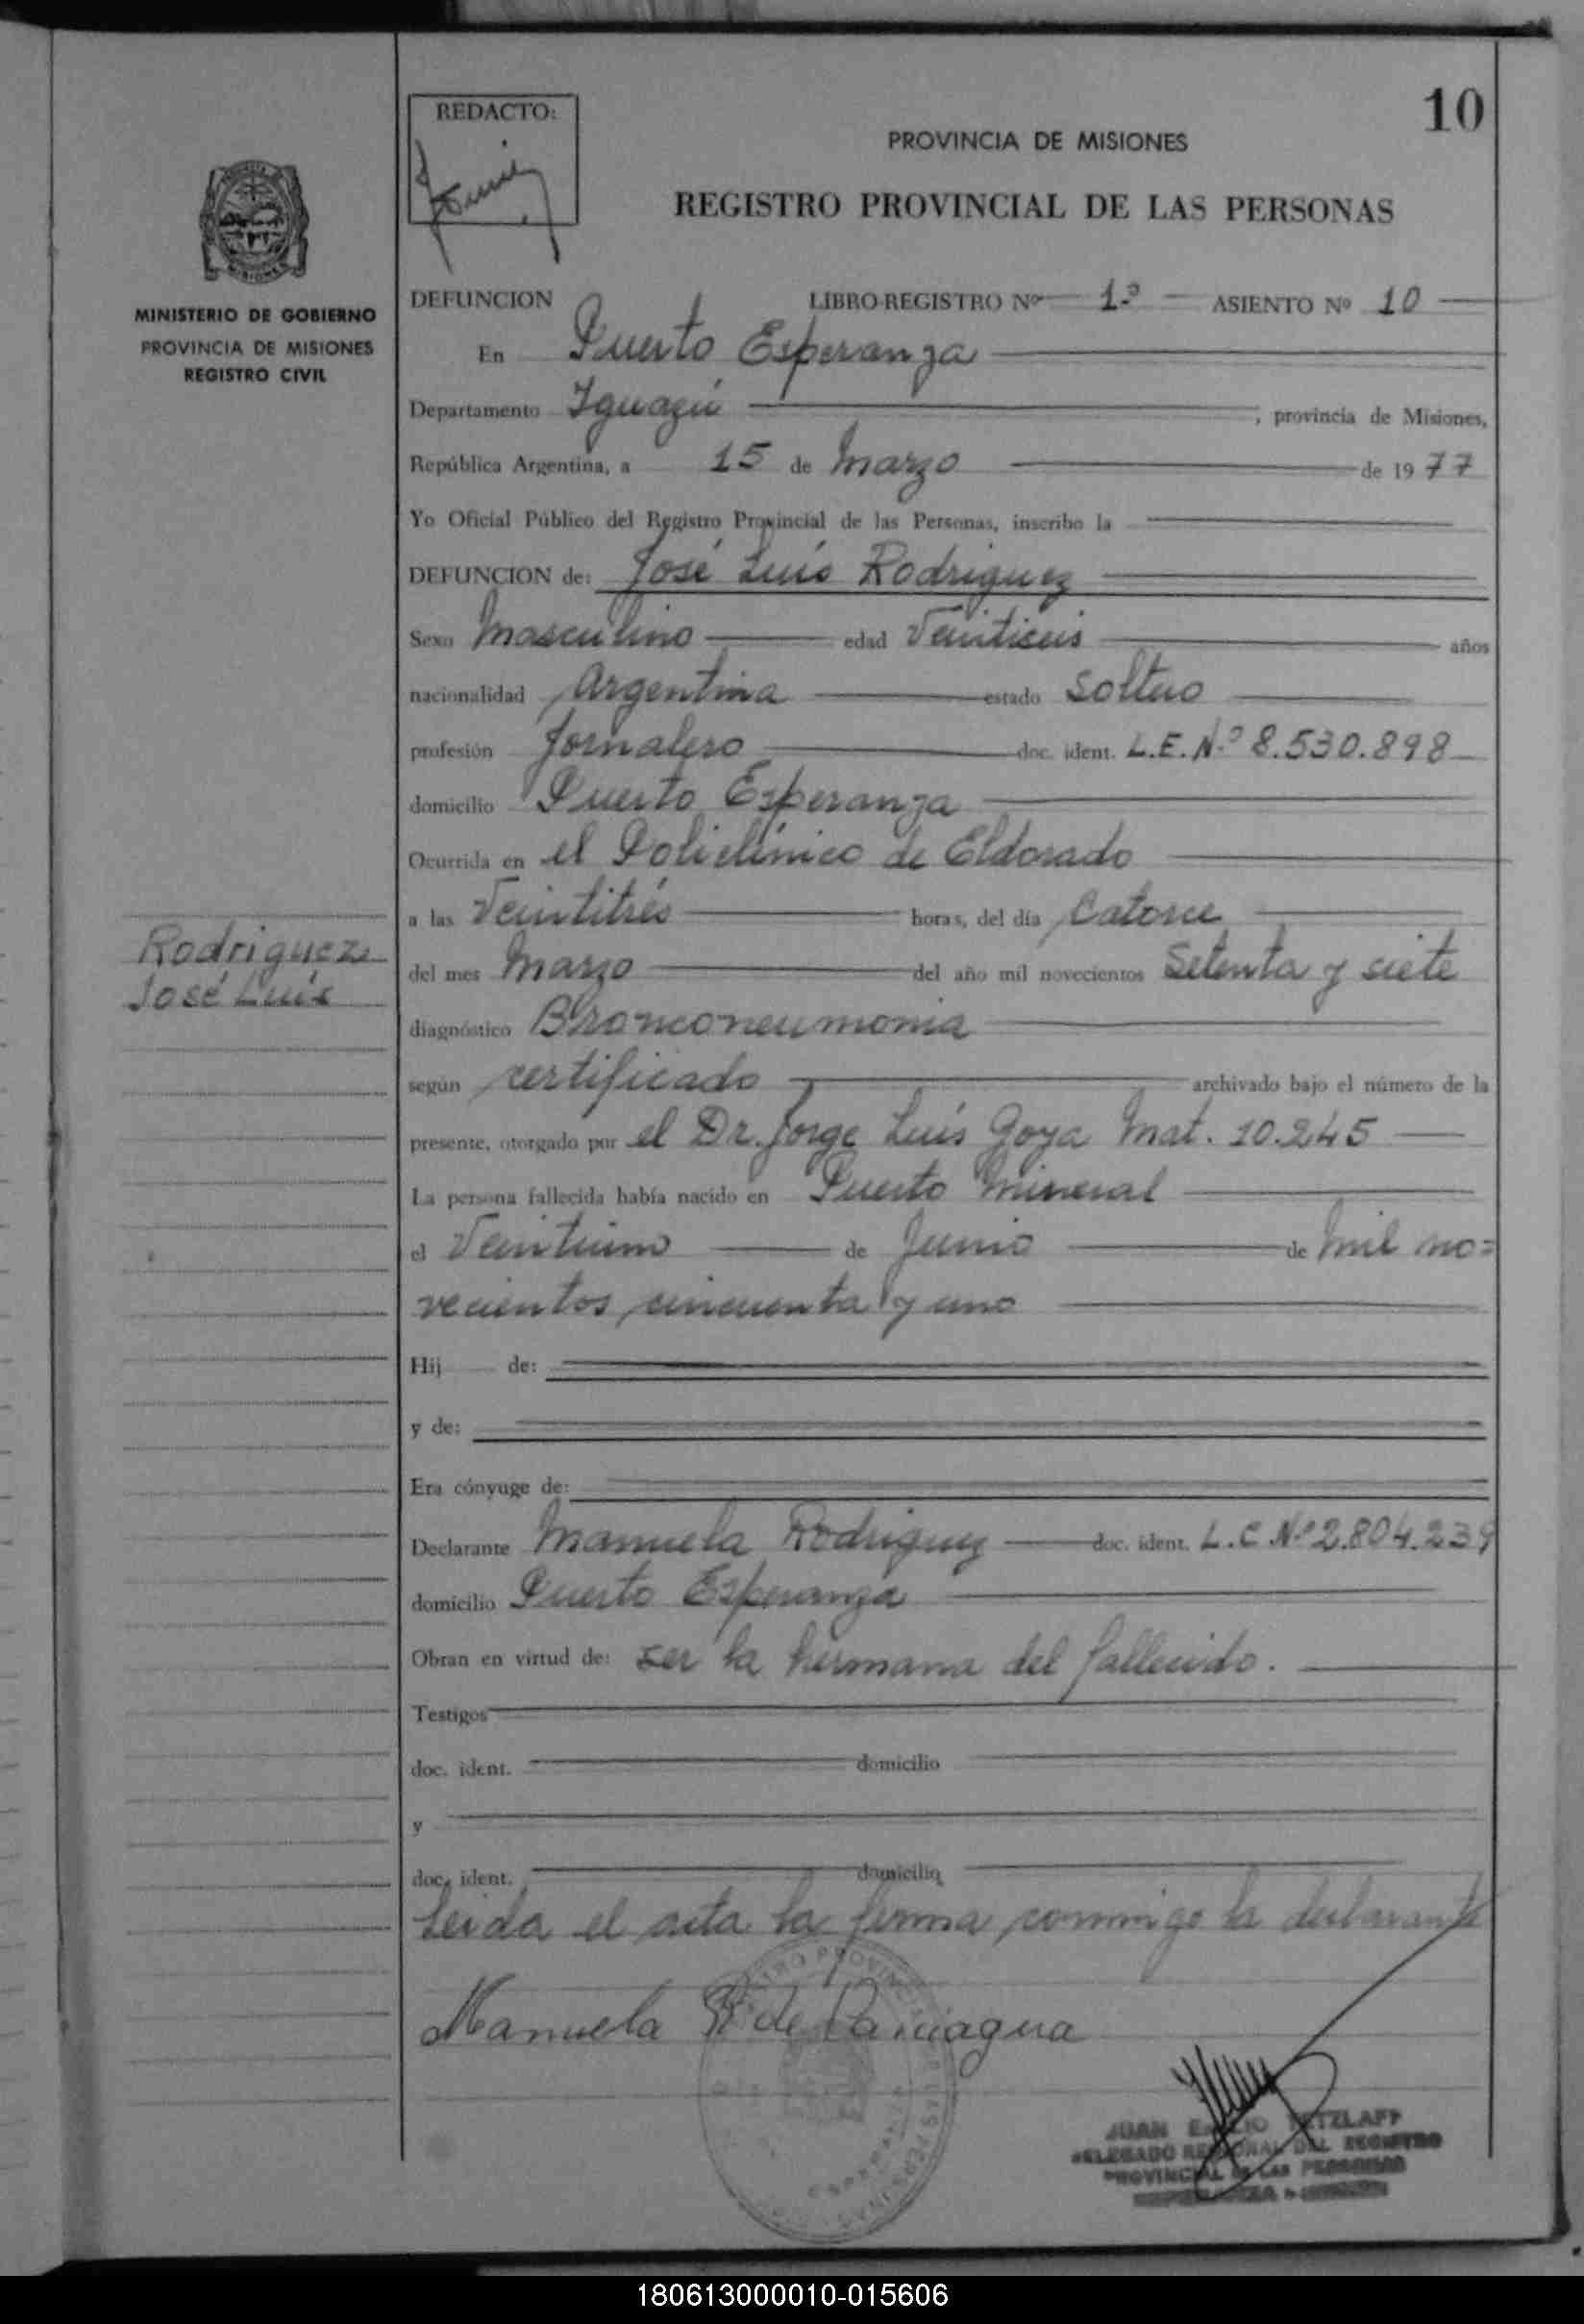 10
REDACTO:
PROVINCIA DE MISIONES
REGISTRO PROVINCIAL DE LAS PERSONAS
MISIONES
MINISTERIO DE GOBIERNO
PROVINCIA DE MISIONES
REGISTRO CIVIL
DEFUNCION LIBRO-REGISTRO Nº 1º ASIENTO Nº 10
En Puerto Esperanza
Departamento Iguazú, provincia de Misiones,
República Argentina, a 15 de Marzo de 1977
Yo Oficial Público del Registro Provincial de las Personas, inscribo la
DEFUNCION de: José Luís Rodriguez
Sexo Masculino edad Veintiseis años
nacionalidad Argentina estado Soltero
profesión Jornalero doc. ident. L.E.Nº 8.530.898
domicilio Puerto Esperanza
Ocurrida en el Policlínico de Eldorado
a las Veintitrés horas, del día Catorce
Rodriguez
José Luís
del mes Marzo del año mil novecientos Setenta y siete
diagnóstico Bronconeumonia
según certificado archivado bajo el número de la
presente, otorgado por el Dr. Jorge Luís Goya Mat. 10.245
La persona fallecida había nacido en Puerto Mineral
el Veintiuno de Junio de Mil no=
vecientos cincuenta y uno
Hij de:
y de:
Era cónyuge de:
Declarante Manuela Rodriguez doc. ident. L.C Nº 2.804.239
domicilio Puerto Esperanza
Obran en virtud de: ser la hermana del fallecido.
Testigos
doc. ident. domicilio
y
doc. ident. domicilio
Leida el acta la firma conmigo la declarante
Manuela R de Paniagua
JUAN EMILIO TETZLAFF
DELEGADO REGIONAL DEL REGISTRO
PROVINCIAL DE LAS PERSONAS
180613000010-015606